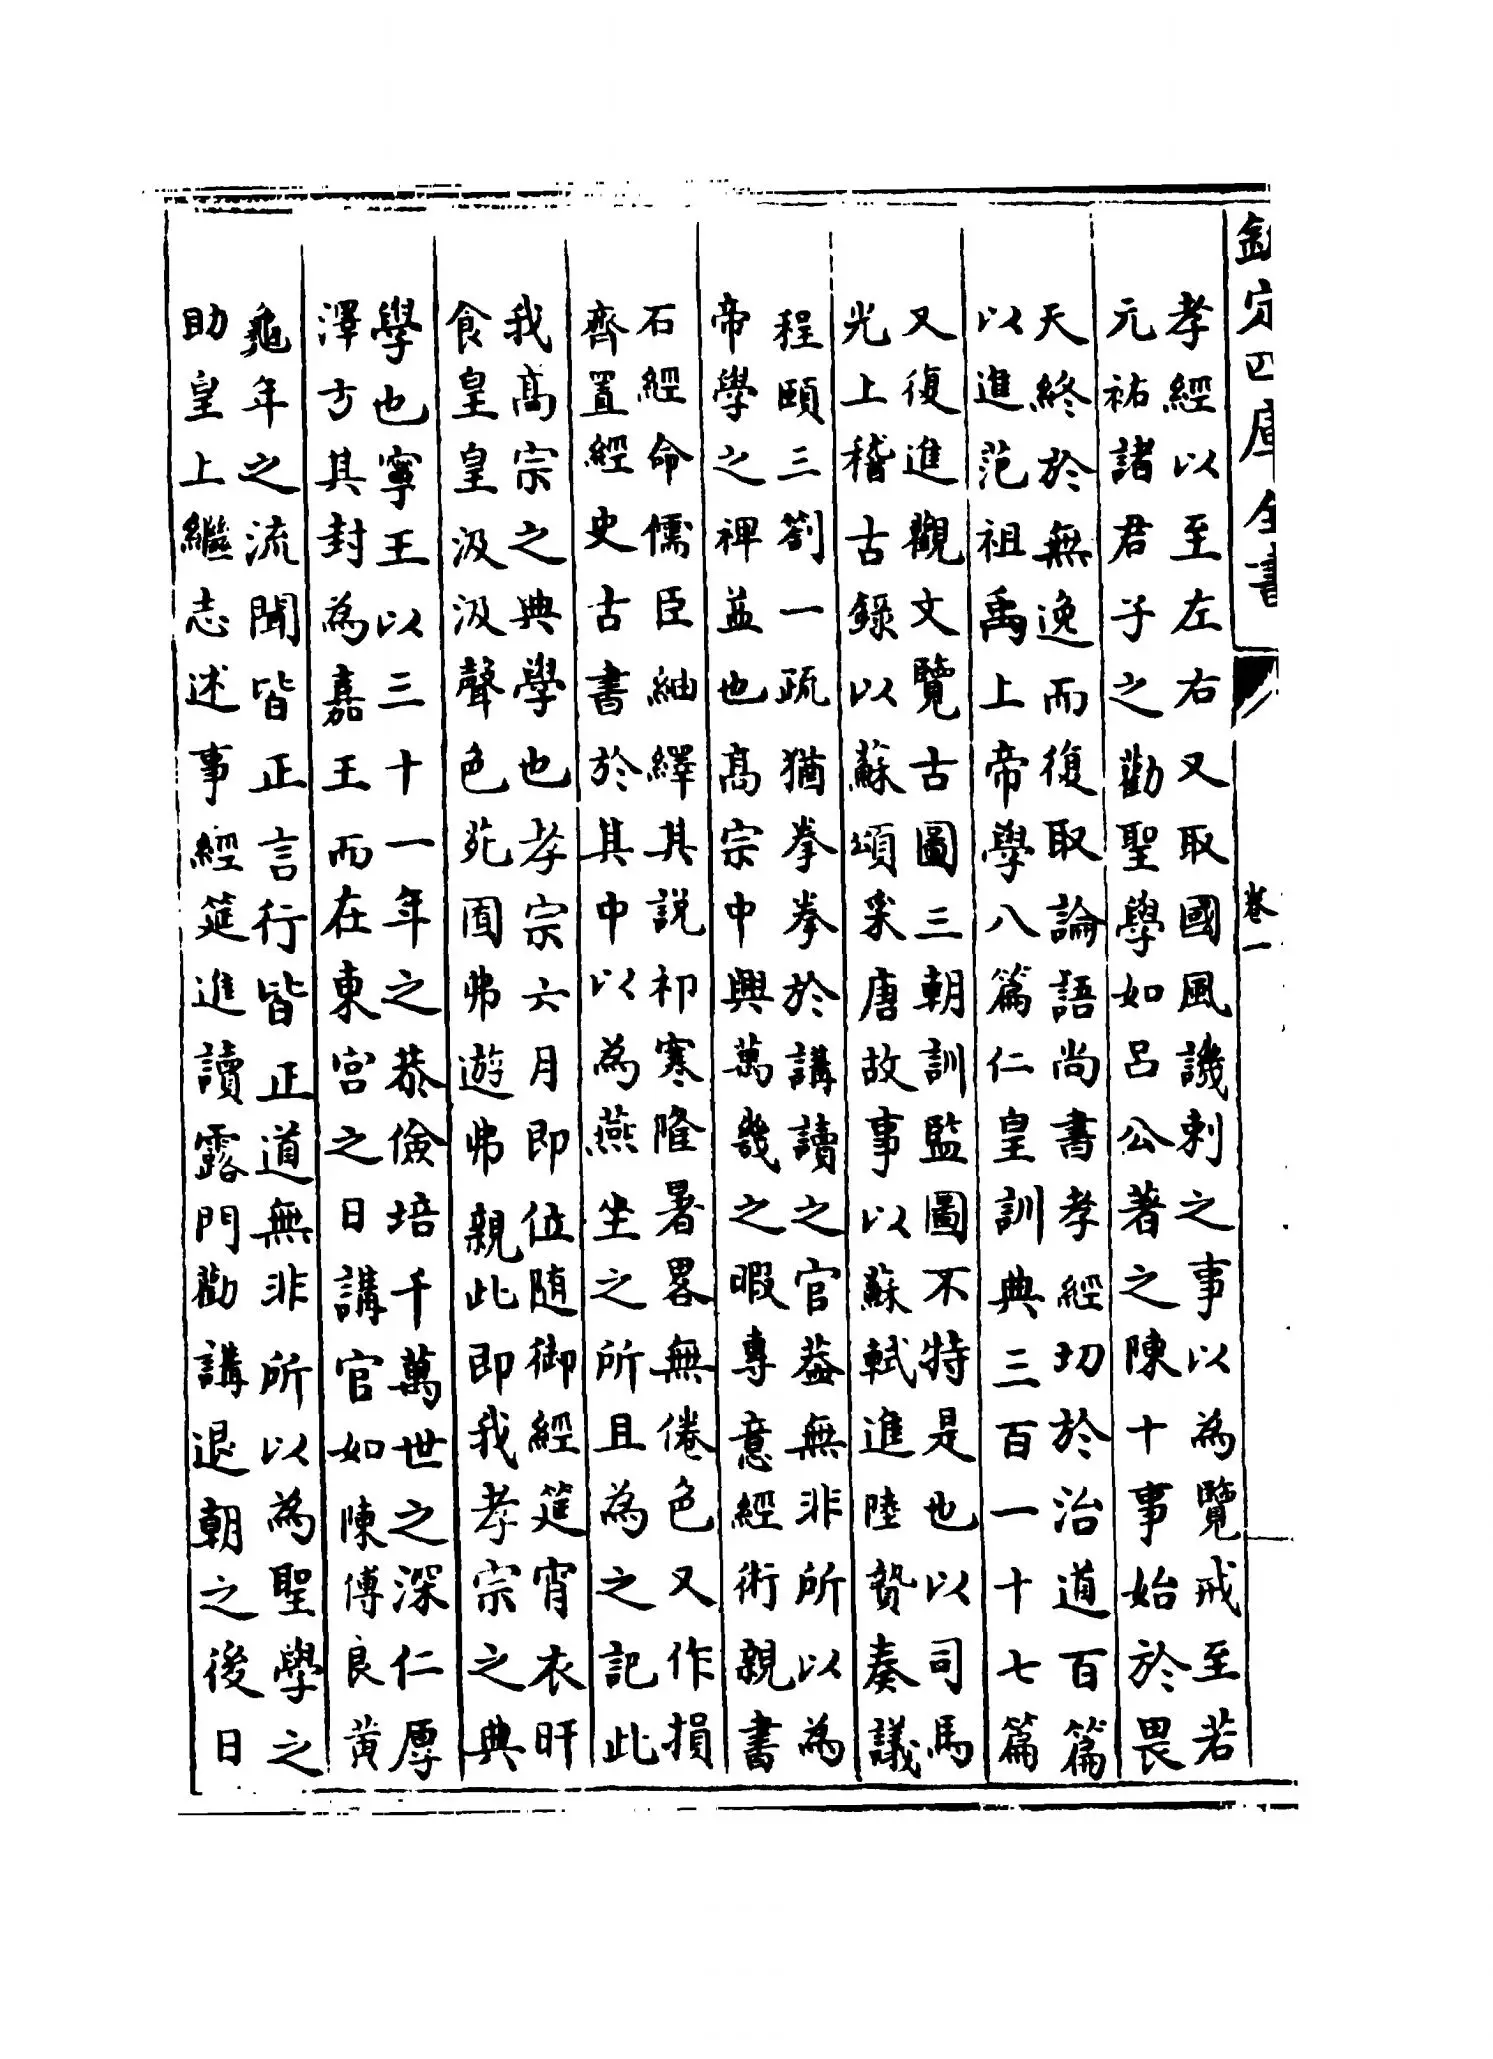 欽定四庫全書
卷一
孝經以至左右又取國風譏刺之事以為覽戒至若
元祐諸君子之勸聖學如呂公著之陳十事始於畏
天終於無逸而復取論語尚書孝經切於治道百篇
以進范祖禹上帝學八篇仁皇訓典三百一十七篇
又復進觀文覽古圖三朝訓監圖不特是也以司馬
光上稽古錄以蘇頌采唐故事以蘇軾進陸贄奏議
程頤三劄一疏猶拳拳於講讀之官葢無非所以為
帝學之裨益也高宗中興萬幾之暇專意經術親書
石經命儒臣紬繹其說祁寒隆暑畧無倦色又作損
齊置經史古書於其中以為燕坐之所且為之記此
我高宗之典學也孝宗六月即位随御經筵宵衣旰
食皇皇汲汲聲色苑囿弗遊弗親此即我孝宗之典
學也寧王以三十一年之恭儉培千萬世之深仁厚
澤方其封為嘉王而在東宮之日講官如陳傅良黄
龜年之流聞皆正言行皆正道無非所以為聖學之
助皇上繼志述事經筵進讀露門勸講退朝之後日